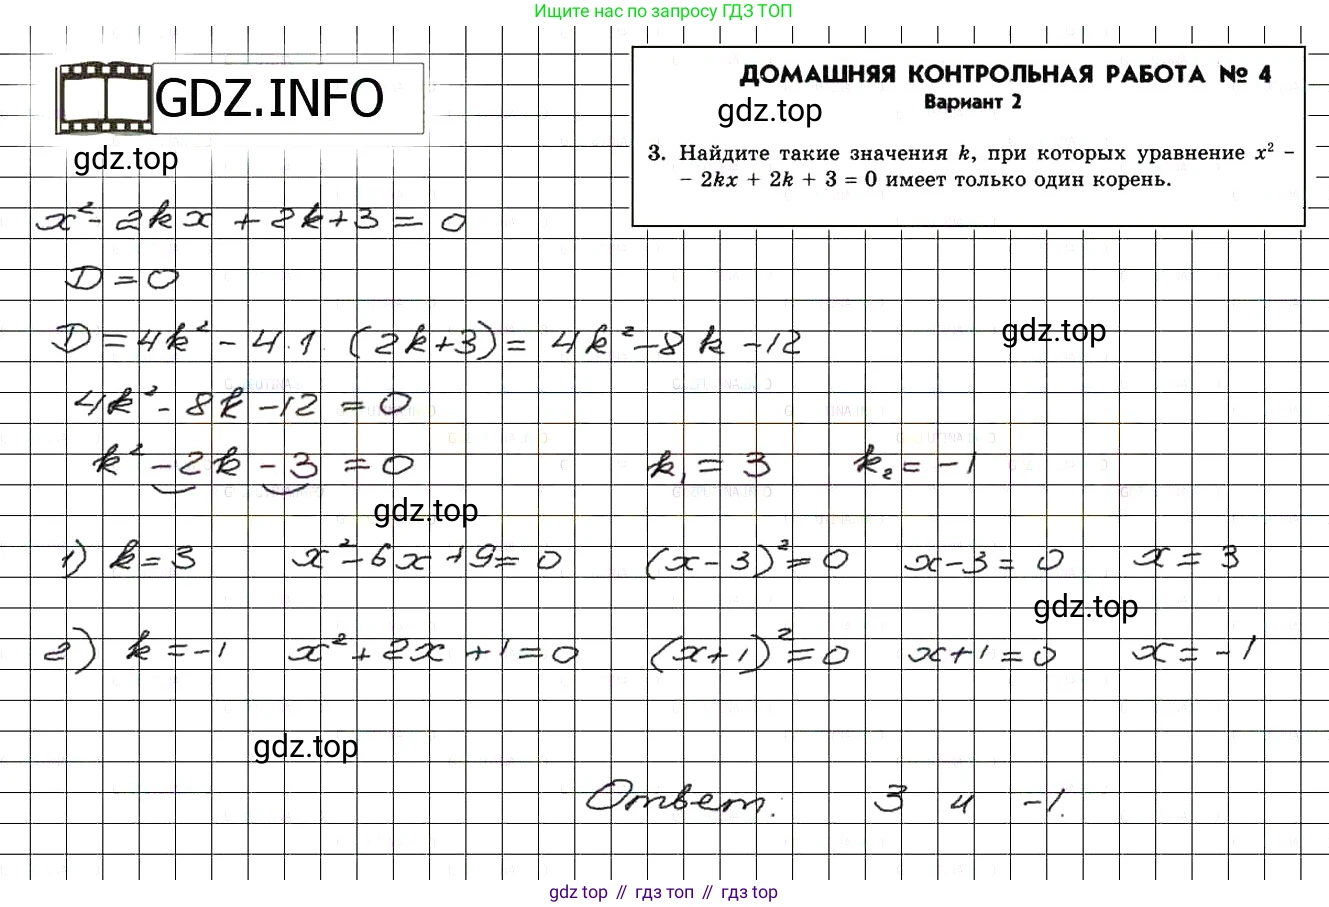 Ищите нас по запросу ГДЗ ТОП
GDZ.INFO
gdz.top
ДОМАШНЯЯ КОНТРОЛЬНАЯ РАБОТА № 4
Вариант 2
gdz.top
3. Найдите такие значения k, при которых уравнение x² –
– 2kx + 2k + 3 = 0 имеет только один корень.
x² - 2kx + 2k + 3 = 0
D = 0
D = 4k² - 4·1·(2k+3) = 4k² - 8k - 12
gdz.top
4k² - 8k - 12 = 0
k² - 2k - 3 = 0 k₁ = 3 k₂ = -1
gdz.top
1) k = 3 x² - 6x + 9 = 0 (x - 3)² = 0 x - 3 = 0 x = 3
gdz.top
2) k = -1 x² + 2x + 1 = 0 (x + 1)² = 0 x + 1 = 0 x = -1
gdz.top
Ответ: 3 и -1.
gdz top // гдз топ // gdz top